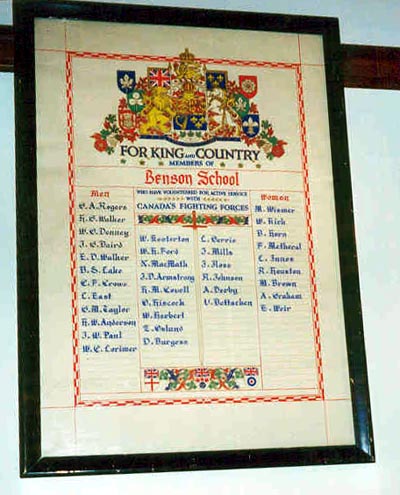 FOR KING AND COUNTRY
MEMBERS OF
Benson School
WHO HAVE VOLUNTEERED FOR ACTIVE SERVICE
WITH
CANADA'S FIGHTING FORCES
Men
G. A. Rogers
H. G. Walker
W. G. Denney
J. G. Baird
E. D. Walker
B. S. Lake
C. F. Crowe
L. East
G. M. Taylor
H. W. Anderson
J. W. Paul
W. C. Lorimer
W. Hooterton
W. H. Ford
N. MacMath
J. D. Armstrong
H. M. Covell
O. Hiscock
W. Herbert
T. Oslund
D. Burgess
L. Berrie
J. Mills
J. Ross
R. Johnson
A. Derby
V. Dettschen
Women
M. Wismer
W. Kick
B. Horn
F. Metheral
L. Innes
R. Houston
M. Brown
A. Graham
E. Weir